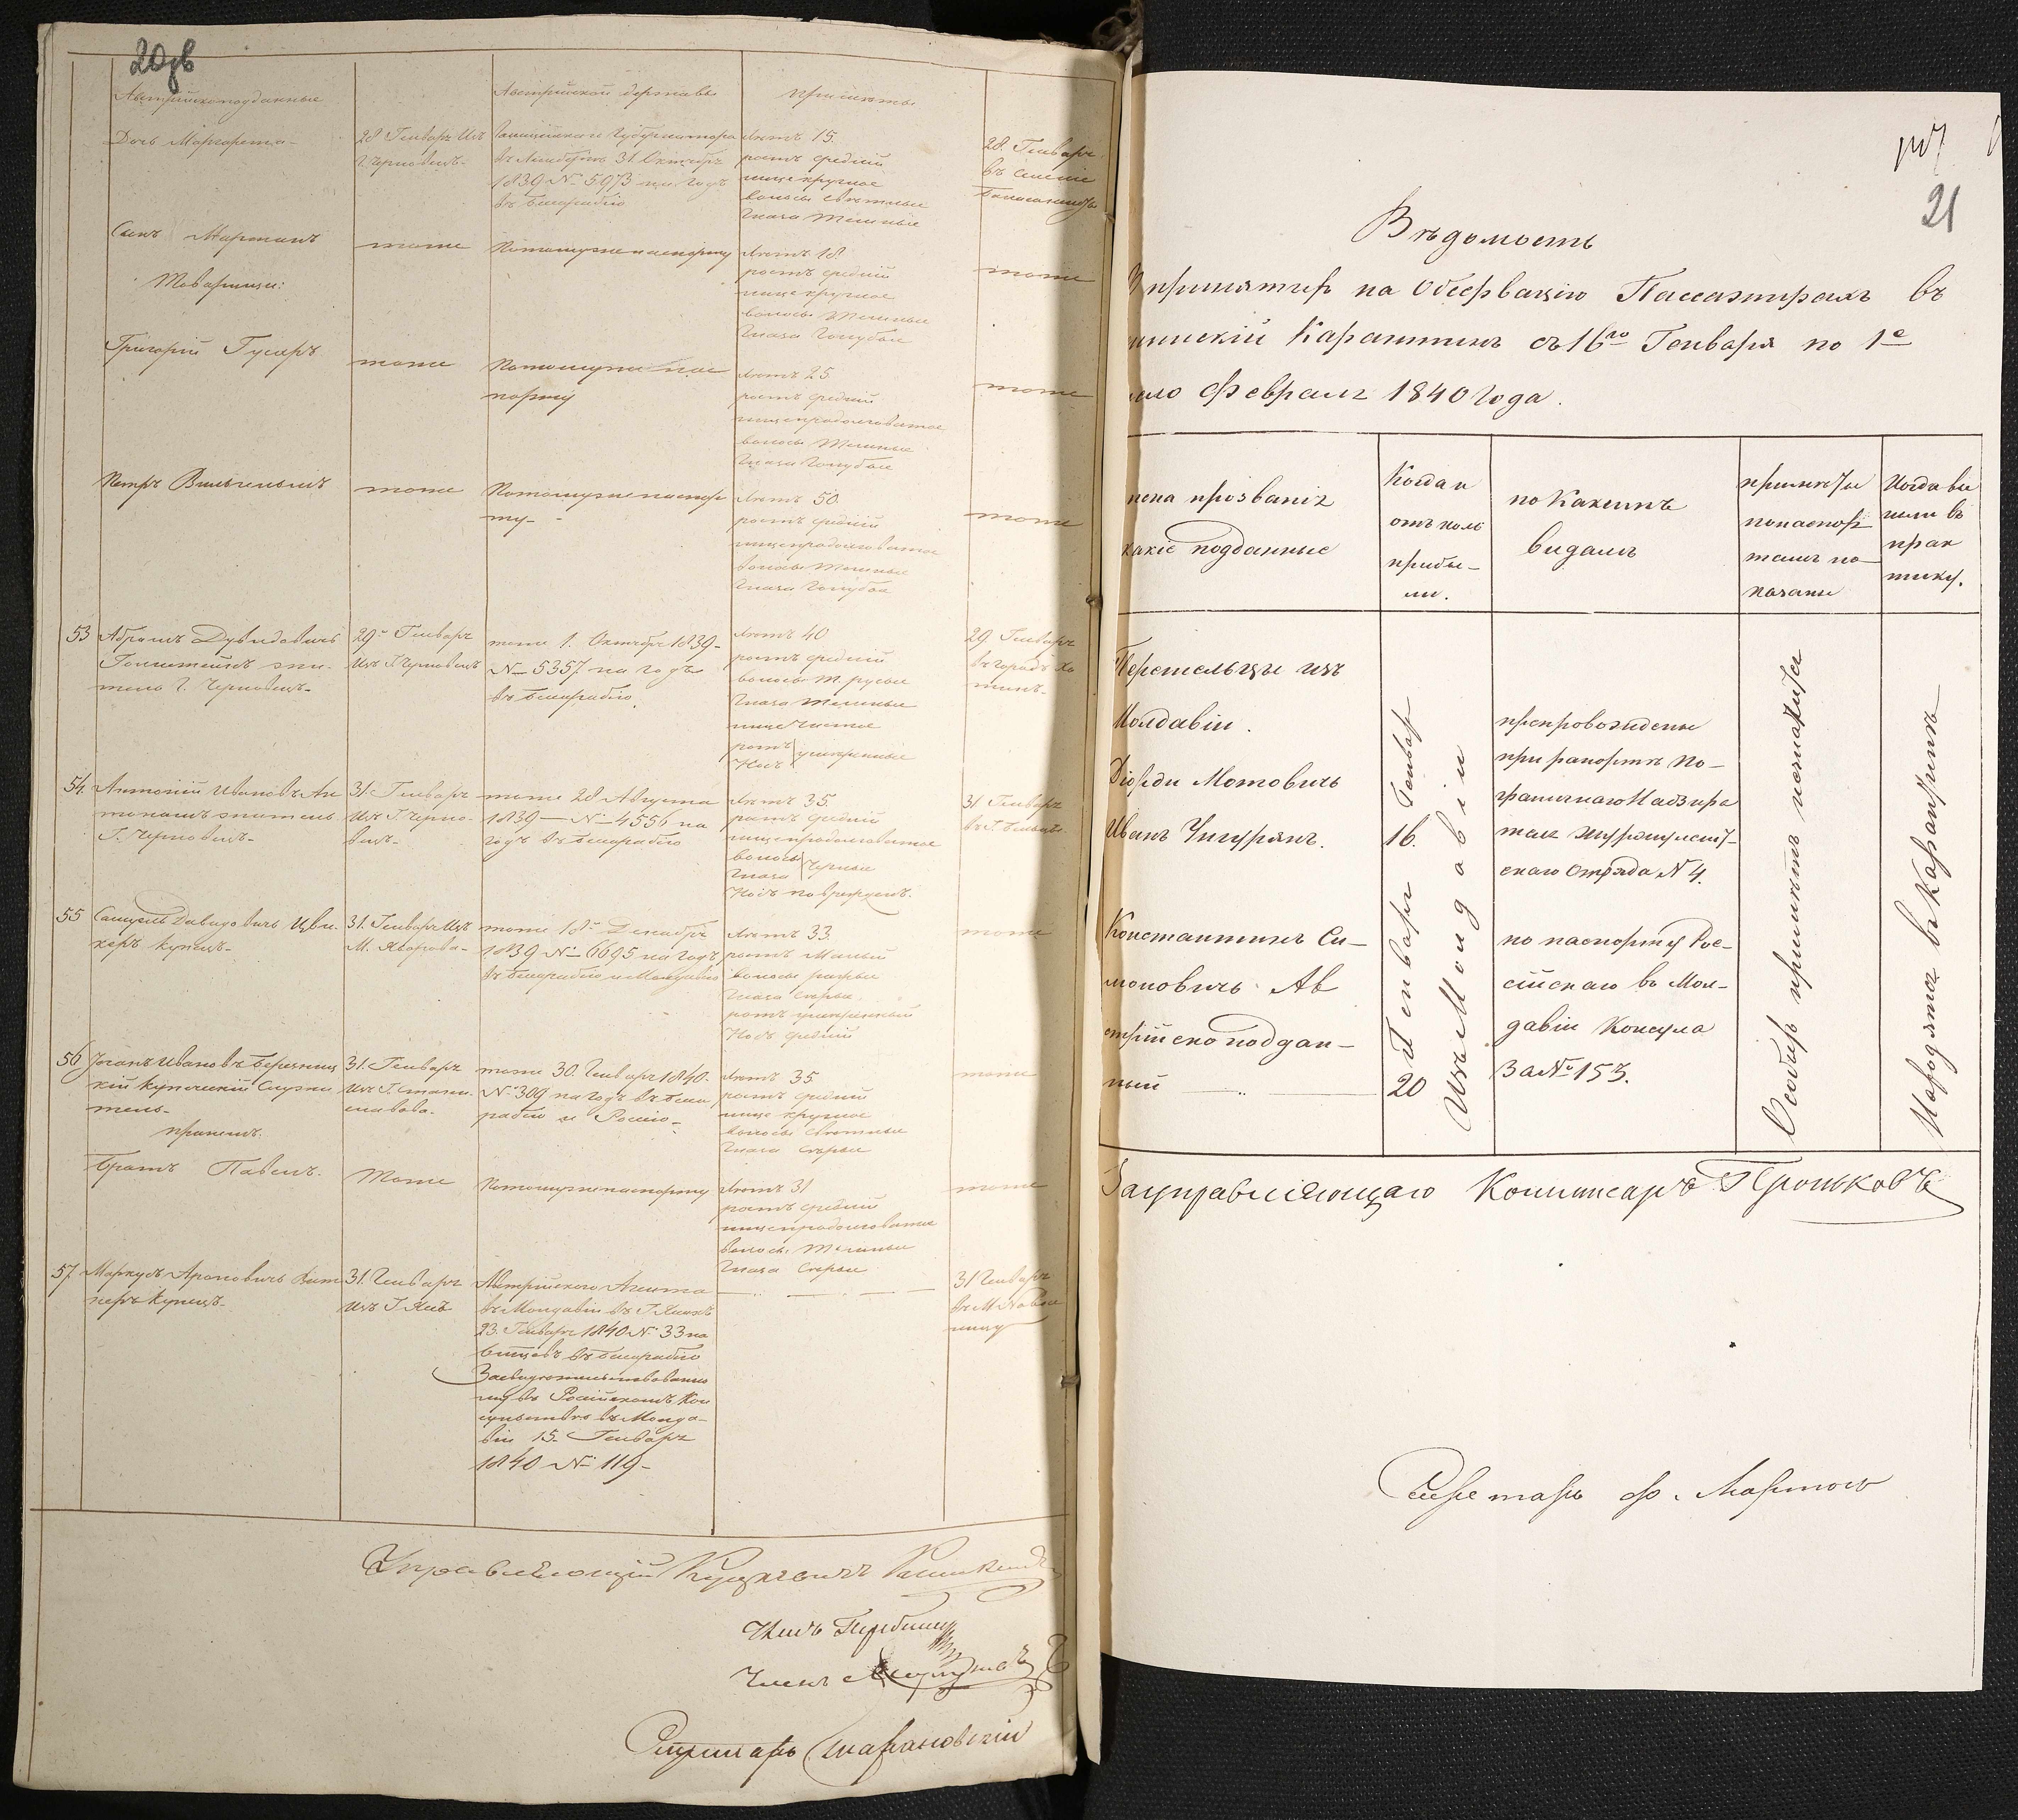 20об
Австрійскоподданные
Австрійской державы
примѣты
Дочь Маргарета-
28 Генваря Изъ
Г. Черновецъ-
Галиційскаго Губернатора
въ Лемберге 31. Октября
1839 № 5973 на Годъ
въ Бесарабію
Лѣтъ 15.
ростъ средній
лице круглое
волосы свѣтлые
Глаза темные
28. Генваря
въ селеніе
Сынъ
тоже
Потомуже паспорту
Лѣтъ 18
ростъ средній
лице круглое
волосы темные
Глаза Голубые
тоже
Товарищи:
Григорій Гусаръ
тоже
Потомуже пас
порту
Лѣтъ 25.
ростъ средній
лице продолговатое
волосы темные
Глаза Голубые
тоже
Петръ
тоже
Потомуже паспор
ту-
Лѣтъ 50.
ростъ средній
лице продолговатое
волосы темные
Глаза Голубые
тоже
53 Абрамъ Дувидовичъ
Голштейнъ жи-
тель Г. Черновецъ-
29- Генваря
Изъ Г. Черновецъ
тоже 1. Октября 1839-
№ 5357 на годъ
въ Бесарабію.
Лѣтъ 40
ростъ средній
волосы т. русые
Глаза темные
лице чистое
ротъ
Носъ
умѣренные
29. Генваря
въ городъ Хо
тинъ-
54. Антоній Ивановъ Ан
тонашъ житель
Г. Черновецъ-
31. Генваря
Изъ Г. Черно-
вецъ-
тоже 28 Августа
1839 — № 4556 на
годъ въ Бесарабію
Лѣтъ 35.
ростъ средній
лице продолговатое
волосы
Глаза
черные
Носъ поврежденъ.
31 Генваря
въ Г. Бельцы
55 Самуель Давидовичъ Цви-
керъ купецъ-
31. Генваря Изъ
М.
тоже 18- Декабря
1839 № 6695 на годъ
въ Бесарабію и Молдавію
Лѣтъ 33
ростъ Малый
волосы рыжые
Глаза серые
ротъ умѣренный
Носъ средній
тоже
56 Іоганъ Ивановъ Бережниц
кій купеческій Служи
тель-
31. Генваря
Изъ Г. Стани-
славова-
тоже 30. Генваря 1840-
№ 309 на Годъ въ Беса
рабію и Россію-
Лѣтъ 35
ростъ средній
лице круглое
волосы свѣтлые
Глаза серые
тоже
при немъ.
Братъ Павелъ.
Тоже
Потомуже паспорту
Лѣтъ 31
ростъ средній
лице продолговатое
волосы темные
Глаза серые
тоже
57 Маркусъ Ароновичъ Вит
неръ купецъ-
31. Генваря
Изъ Г. Яссъ
Австрійскаго Агента
въ Молдавіи въ Г. Яссахъ
23. Генваря 1840 № 33 на
въ Бесарабію
Засвидѣтельствованно
му въ Россійскомъ Кон
сульствѣ въ Молда-
віи 15. Генваря
1840 № 119-
31 Генваря
въ М. Новосе
лицу
Управляющій
Членъ
Членъ
Секретарь
21
Вѣдомость
принятыхъ на Обсервацію Пассажирахъ въ
Карантинъ съ 16го Генваря по 1е
число Февраля 1840 Года.
мена прозванія
какіе подданные
Когда и
отъ коль
прибы-
ли.
по Какимъ
видамъ
примѣты
по паспор
тамъ по-
казаны
Когда вы
шли въ
прак
тику.
Переселенцы изъ
Молдавіи.
Діорди Мотовичъ
Иванъ Унгурянъ.
16. Генваря
препровождены
при рапортѣ По-
граничнаго Надзира
скаго Отряда № 4.
Константинъ Си-
моновичъ Ав
стрійскоподдан-
ный
20 Генваря
Изъ Молдавіи
по паспорту Рос-
сійскаго въ Мол-
давіи Консула
За № 153.
Особыхъ примѣтъ неимѣется
Находятся въ Карантинѣ
За управляющаго Коммисаръ Проньковъ
Секретарь Ф. Мартосъ